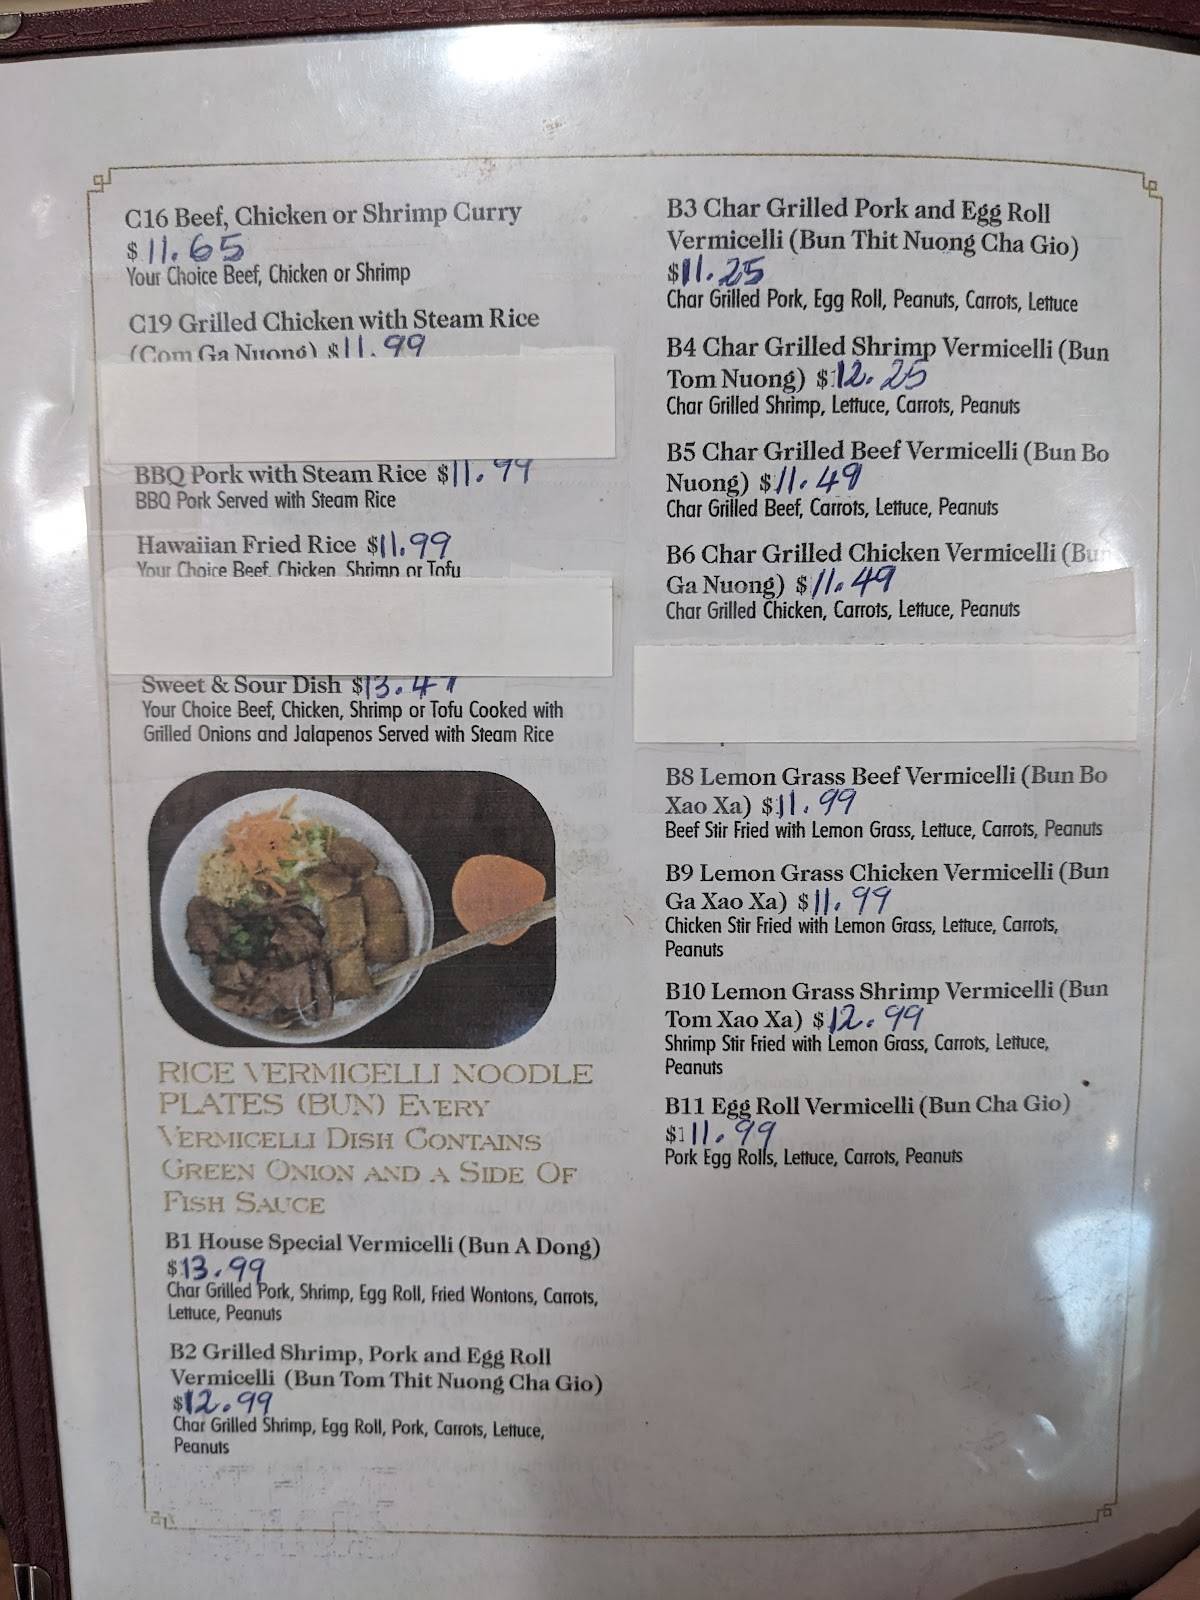 C16 Beef, Chicken or Shrimp Curry
$11.65
Your Choice Beef, Chicken or Shrimp
C19 Grilled Chicken with Steam Rice
(Com Ga Nuong) $11.99
BBQ Pork with Steam Rice $11.99
BBQ Pork Served with Steam Rice
Hawaiian Fried Rice $11.99
Your Choice Beef, Chicken, Shrimp or Tofu
Sweet & Sour Dish $13.47
Your Choice Beef, Chicken, Shrimp or Tofu Cooked with
Grilled Onions and Jalapenos Served with Steam Rice
RICE VERMICELLI NOODLE
PLATES (BUN) EVERY
VERMICELLI DISH CONTAINS
GREEN ONION AND A SIDE OF
FISH SAUCE
B1 House Special Vermicelli (Bun A Dong)
$13.99
Char Grilled Pork, Shrimp, Egg Roll, Fried Wontons, Carrots,
Lettuce, Peanuts
B2 Grilled Shrimp, Pork and Egg Roll
Vermicelli (Bun Tom Thit Nuong Cha Gio)
$12.99
Char Grilled Shrimp, Egg Roll, Pork, Carrots, Lettuce,
Peanuts
B3 Char Grilled Pork and Egg Roll
Vermicelli (Bun Thit Nuong Cha Gio)
$11.25
Char Grilled Pork, Egg Roll, Peanuts, Carrots, Lettuce
B4 Char Grilled Shrimp Vermicelli (Bun
Tom Nuong) $12.25
Char Grilled Shrimp, Lettuce, Carrots, Peanuts
B5 Char Grilled Beef Vermicelli (Bun Bo
Nuong) $11.49
Char Grilled Beef, Carrots, Lettuce, Peanuts
B6 Char Grilled Chicken Vermicelli (Bun
Ga Nuong) $11.49
Char Grilled Chicken, Carrots, Lettuce, Peanuts
B8 Lemon Grass Beef Vermicelli (Bun Bo
Xao Xa) $11.99
Beef Stir Fried with Lemon Grass, Lettuce, Carrots, Peanuts
B9 Lemon Grass Chicken Vermicelli (Bun
Ga Xao Xa) $11.99
Chicken Stir Fried with Lemon Grass, Lettuce, Carrots,
Peanuts
B10 Lemon Grass Shrimp Vermicelli (Bun
Tom Xao Xa) $12.99
Shrimp Stir Fried with Lemon Grass, Carrots, Lettuce,
Peanuts
B11 Egg Roll Vermicelli (Bun Cha Gio)
$11.99
Pork Egg Rolls, Lettuce, Carrots, Peanuts